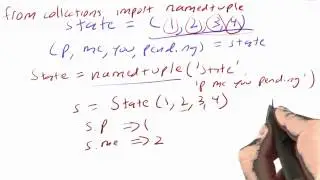 from collections import namedtuple
state = (1, 2, 3, 4)
(p, me, you, pending) = state
State = namedtuple('State',
'p me you pending')
s = State(1, 2, 3, 4)
s.p => 1
s.me => 2